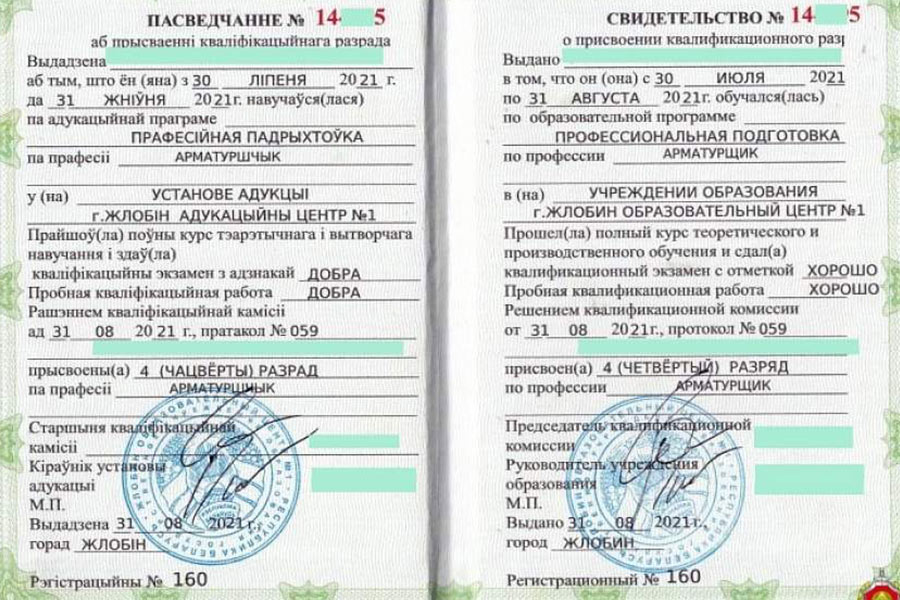 ПАСВЕДЧАННЕ № 14 5
аб прысваенні кваліфікацыйнага разрада
Выдадзена
аб тым, што ён (яна) з 30 ЛІПЕНЯ 2021 г.
да 31 ЖНІЎНЯ 2021г. навучаўся(лася)
па адукацыйнай праграме
ПРАФЕСІЙНАЯ ПАДРЫХТОЎКА
па прафесіі АРМАТУРШЧЫК
у (на) УСТАНОВЕ АДУКЦЫІ
г.ЖЛОБІН АДУКАЦЫЙНЫ ЦЕНТР №1
Прайшоў(ла) поўны курс тэарэтычнага і вытворчага
навучання і здаў(ла)
кваліфікацыйны экзамен з адзнакай ДОБРА
Пробная кваліфікацыйная работа ДОБРА
Рашэннем кваліфікацыйнай камісіі
ад 31 08 2021 г., пратакол № 059
прысвоены(а) 4 (ЧАЦВЁРТЫ) РАЗРАД
па прафесіі АРМАТУРШЧЫК
Старшыня кваліфікацыйнай
камісіі
Кіраўнік установы
адукацыі
М.П.
Выдадзена 31 08 2021г.,
горад ЖЛОБІН
Рэгістрацыйны № 160
СВИДЕТЕЛЬСТВО № 14 95
о присвоении квалификационного разр
Выдано
в том, что он (она) с 30 ИЮЛЯ 2021
по 31 АВГУСТА 2021г. обучался(лась)
по образовательной программе
ПРОФЕССИОНАЛЬНАЯ ПОДГОТОВКА
по профессии АРМАТУРЩИК
в (на) УЧРЕЖДЕНИИ ОБРАЗОВАНИЯ
г.ЖЛОБИН ОБРАЗОВАТЕЛЬНЫЙ ЦЕНТР №1
Прошел(ла) полный курс теоретического и
производственного обучения и сдал(а)
квалификационный экзамен с отметкой ХОРОШО
Пробная квалификационная работа ХОРОШО
Решением квалификационной комиссии
от 31 08 2021г., протокол № 059
присвоен(а) 4 (ЧЕТВЁРТЫЙ) РАЗРЯД
по профессии АРМАТУРЩИК
Председатель квалификационной
комиссии
Руководитель учреждения
образования
М.П.
Выдано 31 08 2021г.,
город ЖЛОБИН
Регистрационный № 160